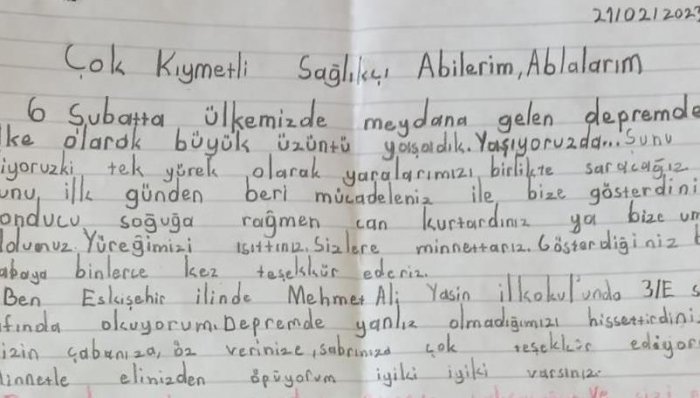 21/02/2023
Çok Kıymetli Sağlıkçı Abilerim, Ablalarım
6 Şubatta ülkemizde meydana gelen depremde
lke olarak büyük üzüntü yaşadık. Yaşıyoruzda... Şunu
iyoruzki tek yürek olarak yaralarımızı birlikte saracağız
unu ilk günden beri mücadeleniz ile bize gösterdini
onducu soğuğa rağmen can kurtardınız ya bize um
ldunuz. Yüreğimizi ısıttınız. Sizlere minnettarız. Gösterdiğiniz
abaya binlerce kez teşekkür ederiz.
Ben Eskişehir ilinde Mehmet Ali Yasin İlkokul'unda 3/E s
ıfında okuyorum. Depremde yanlız olmadığımızı hissettirdini
izin çabanıza, öz verinize, sabrınıza çok teşekkür ediyor
innetle elinizden öpüyorum iyiki iyiki varsınız.